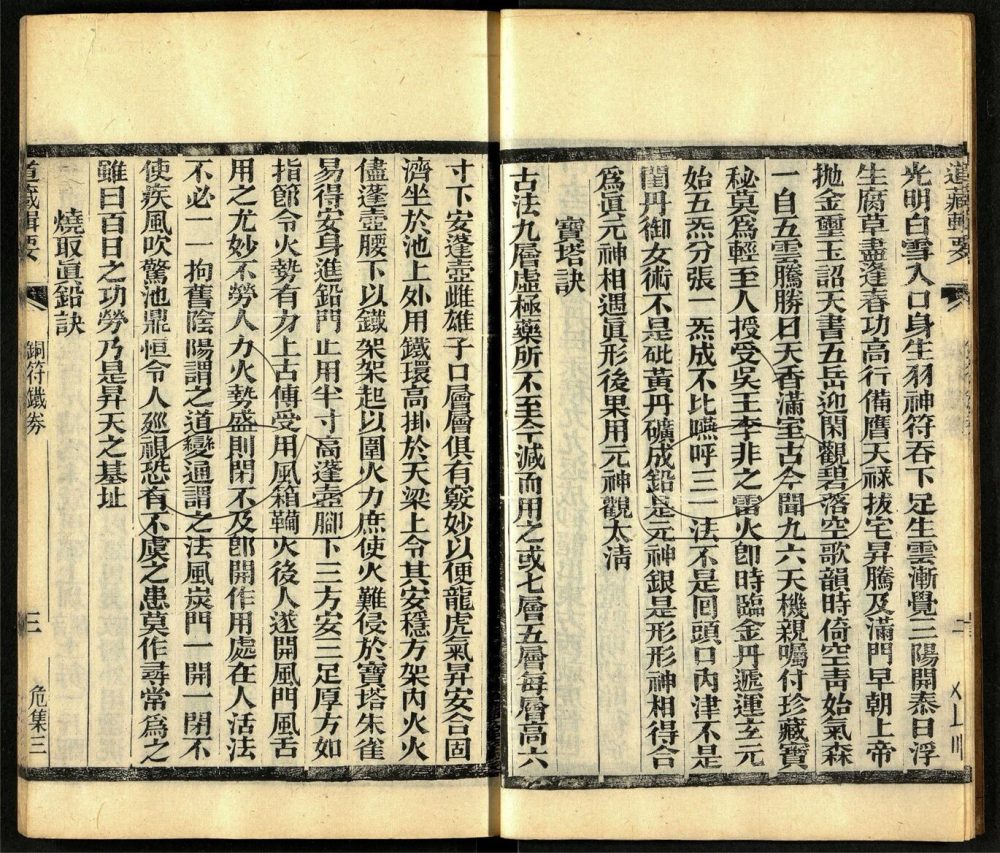 道藏輯要
光明白雪入口身生羽神符吞下足生雲漸覺三陽開泰日浮
生腐草盡逢春功高行備膺天祿拔宅昇騰及滿門早朝上帝
拋金璽玉詔天書五岳迎閑觀碧落空歌韻時倚空靑始氣森
一自五雲騰勝日天香滿室古今聞九六天機親囑付珍藏寶
秘莫爲輕至人授受吳王李非之雷火卽時臨金丹遞運玄元
始五炁分張一炁成不比嚥呼三一法不是回頭口內津不是
閨丹御女術不是砒黃丹礦成鉛是元神銀是形形神相得合
爲眞元神相遇眞形後果用元神觀太清
寶塔訣
古法九層虛極藥所不至今減而用之或七層五層每層高六
寸下安蓬壺雌雄子口層層俱有竅妙以便龍虎氣昇安合固
濟坐於池上外用鐵環高掛於天梁上令其安穩方架內火火
儘蓬壺腰下以鐵架架起以圍火力庶使火難侵於寶塔朱雀
易得安身進鉛門止用半寸高蓬壺腳下三方安三足厚方如
指節令火勢有力上古傳受用風箱鞴火後人遂開風門風舌
用之尤妙不勞人力火勢盛則閉不及卽開作用處在人活法
不必一一拘舊陰陽謂之道變通謂之法風炭門一開一閉不
使疾風吹驚池鼎恒令人廵視恐有不虞之患莫作尋常爲之
雖曰百日之功勞乃是昇天之基址
燒取眞鉛訣
道藏輯要
銅符鐵券
三
危集三